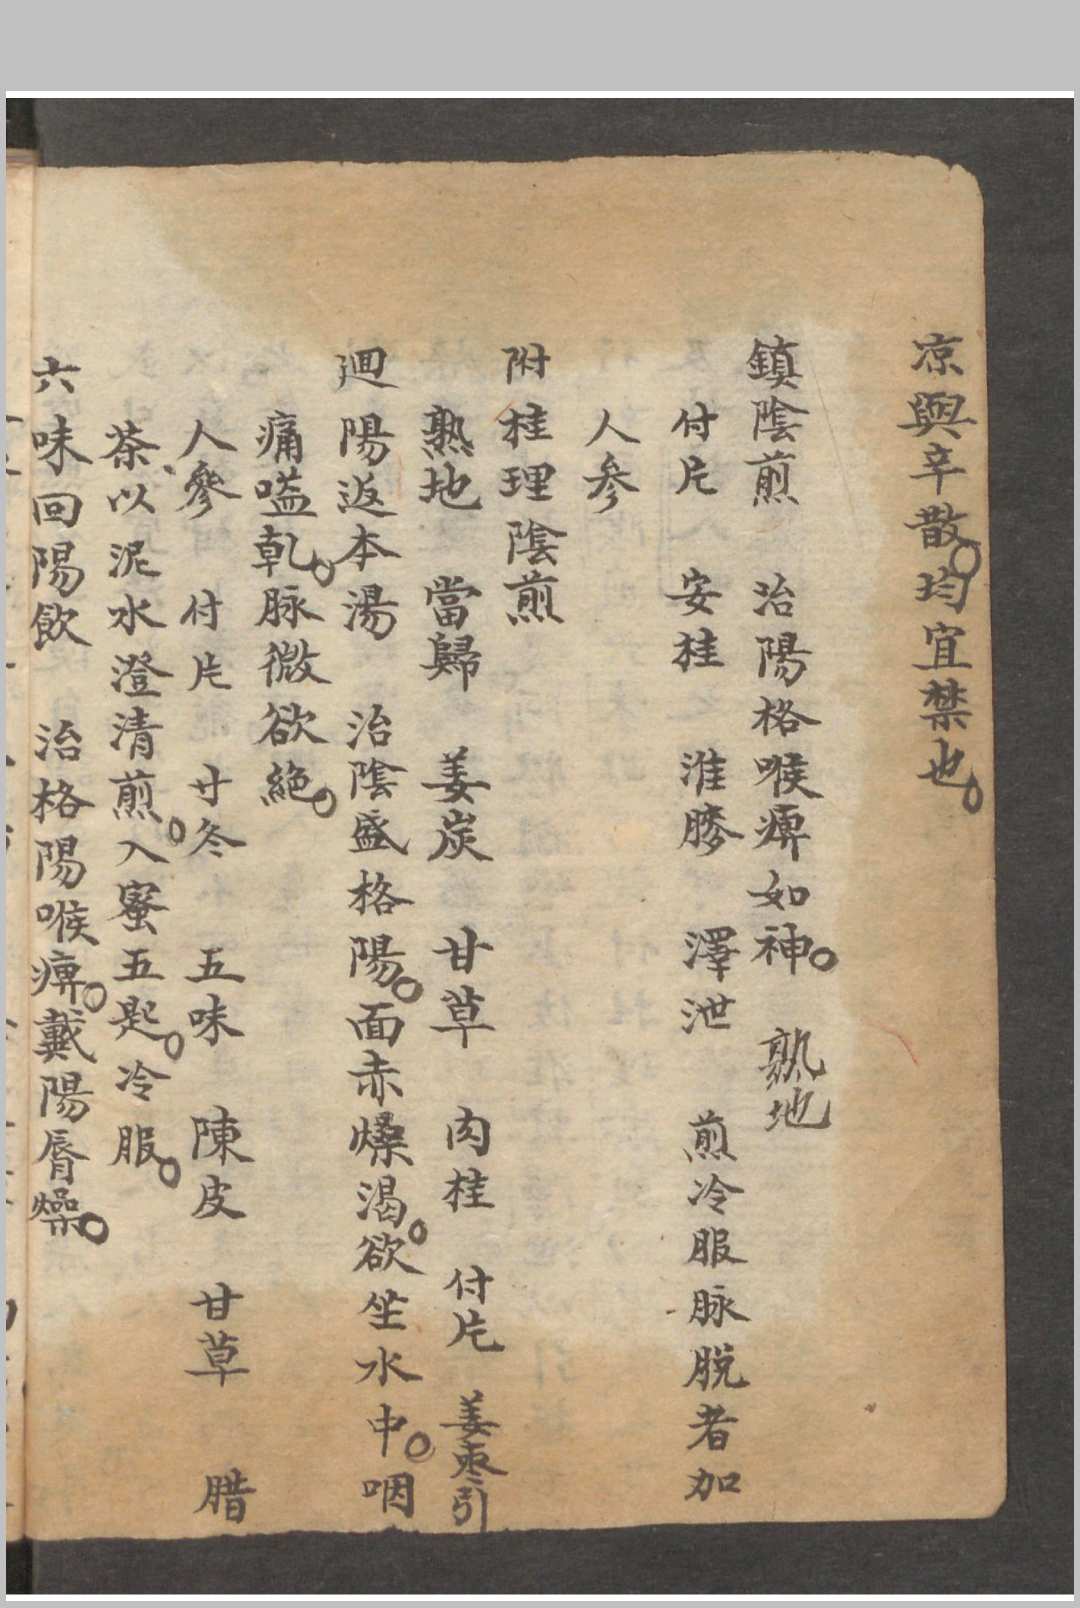 凉與辛散。均宜禁也。
鎮陰煎　治陽格喉痹如神。　熟地
付片　安桂　淮膝　澤泄　煎冷服脉脱者加
人参
附桂理陰煎
熟地　當歸　姜炭　甘草　肉桂　付片　姜枣引
迴陽返本湯　治陰盛格陽。面赤燥渴。欲坐水中。咽
痛嗌乾。脉微欲絶。
人參　付片　寸冬　五味　陳皮　甘草　腊
茶、以泥水澄清煎。入蜜五匙。冷服。
六味回陽飲　治格陽喉痹。戴陽唇燥。